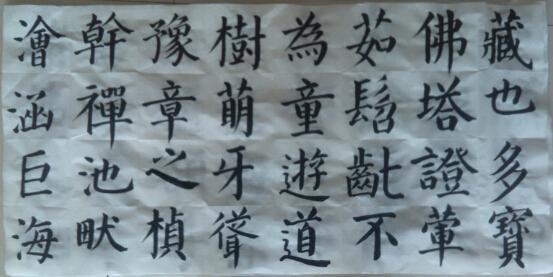 藏也多寶
佛塔證葷
茹髫齔不
為童遊道
樹萌牙聳
豫章之楨
幹禪池畎
澮涵巨海